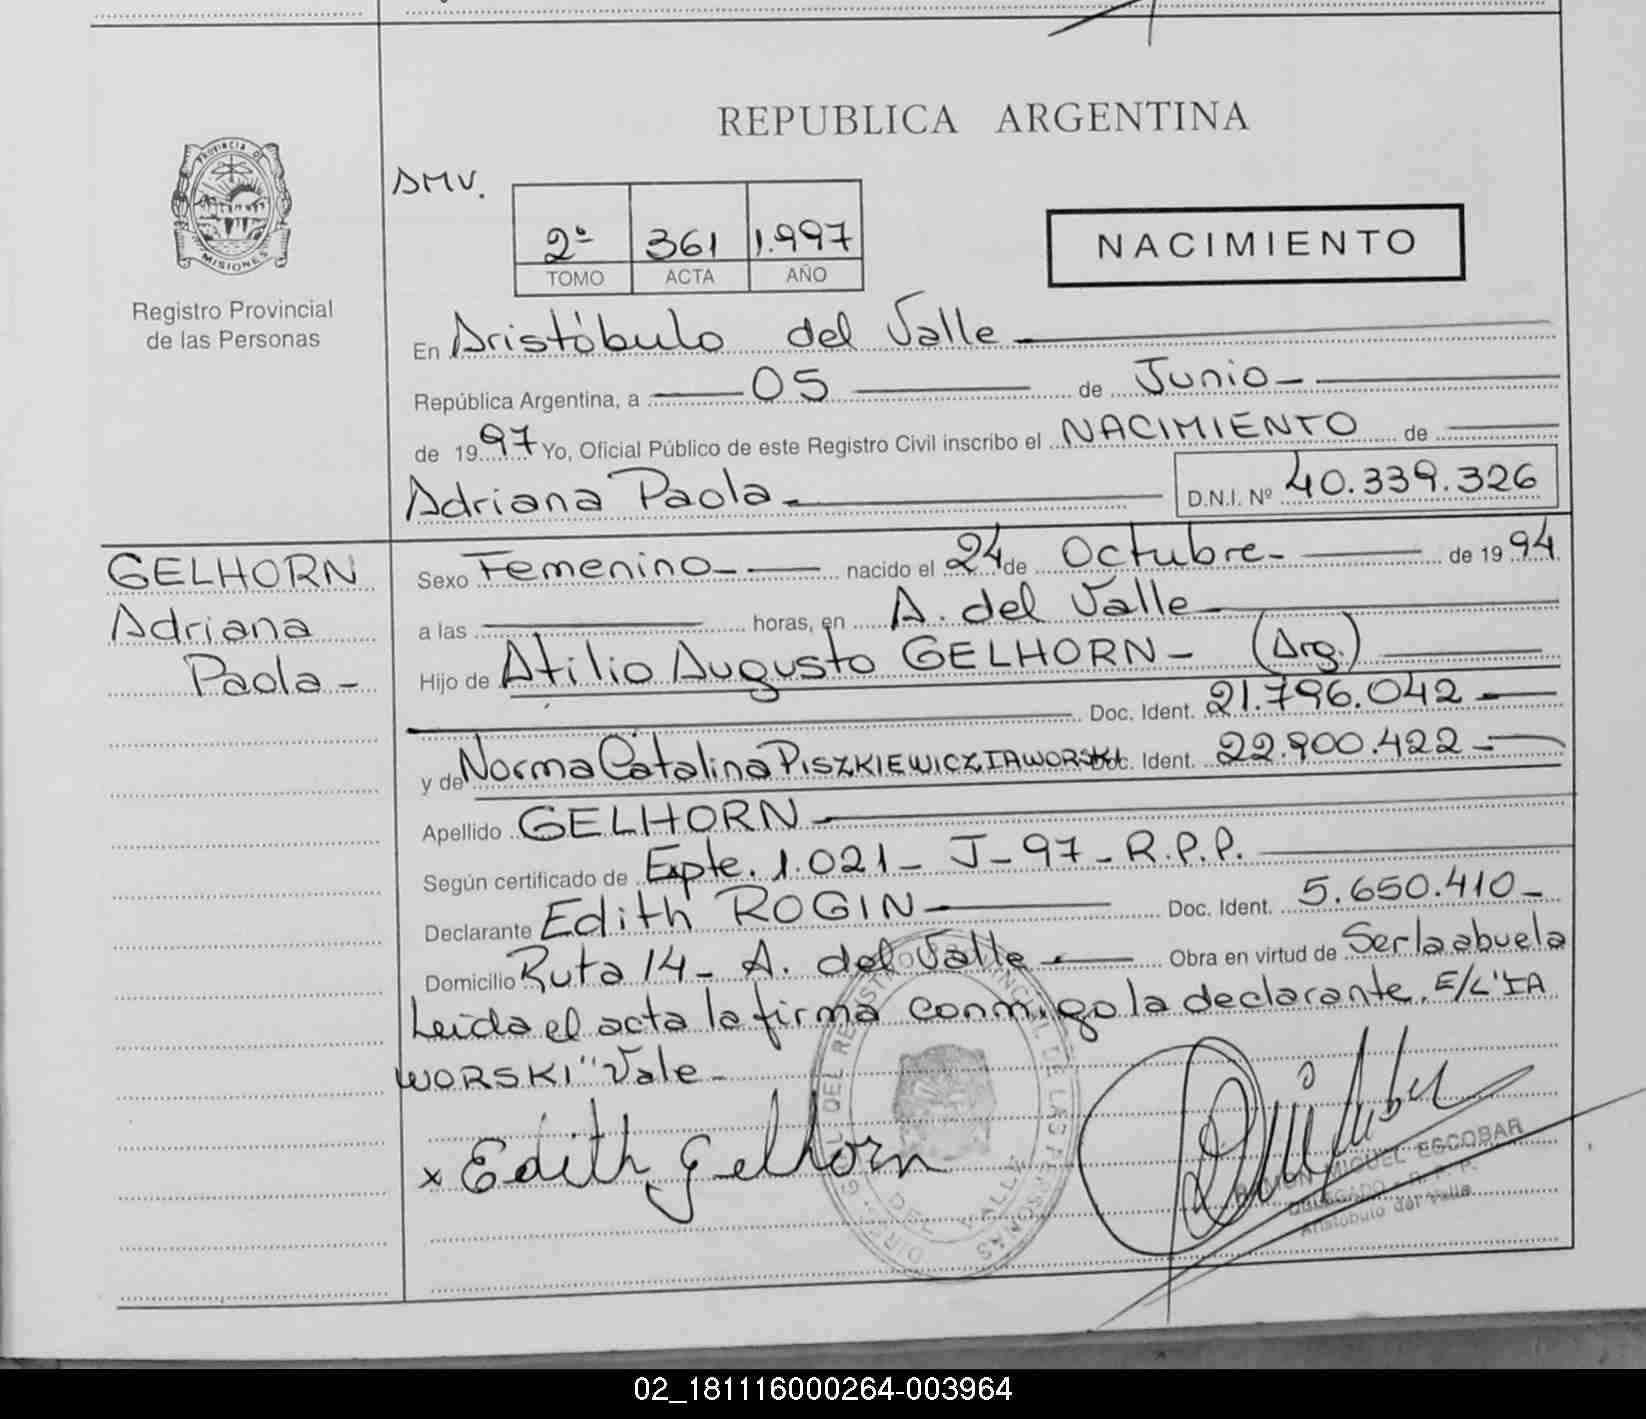 REPUBLICA ARGENTINA
PROVINCIA DE
MISIONES
Registro Provincial
de las Personas
AMV.
2º 361 1.997
TOMO ACTA AÑO
NACIMIENTO
En Aristóbulo del Valle
República Argentina, a 05 de Junio
de 1997 Yo, Oficial Público de este Registro Civil inscribo el NACIMIENTO de
Adriana Paola D.N.I. Nº 40.339.326
GELHORN
Adriana
Paola
Sexo Femenino nacido el 24 de Octubre de 1994
a las horas, en A. del Valle
Hijo de Atilio Augusto GELHORN - (Arg.)
Doc. Ident. 21.796.042
y de Norma Catalina PISZKIEWICZ IAWORSKI Doc. Ident. 22.900.422
Apellido GELHORN
Según certificado de Expte. 1.021 - J - 97 - R.P.P.
Declarante Edith ROGIN Doc. Ident. 5.650.410
Domicilio Ruta 14 - A. del Valle Obra en virtud de Ser la abuela
Leida el acta la firma conmigo la declarante. E/L "IA
WORSKI" Vale -
x Edith Gelhorn
RAMON MIGUEL ESCOBAR
DELEGADO - R. P. P.
Aristóbulo del Valle
02_181116000264-003964